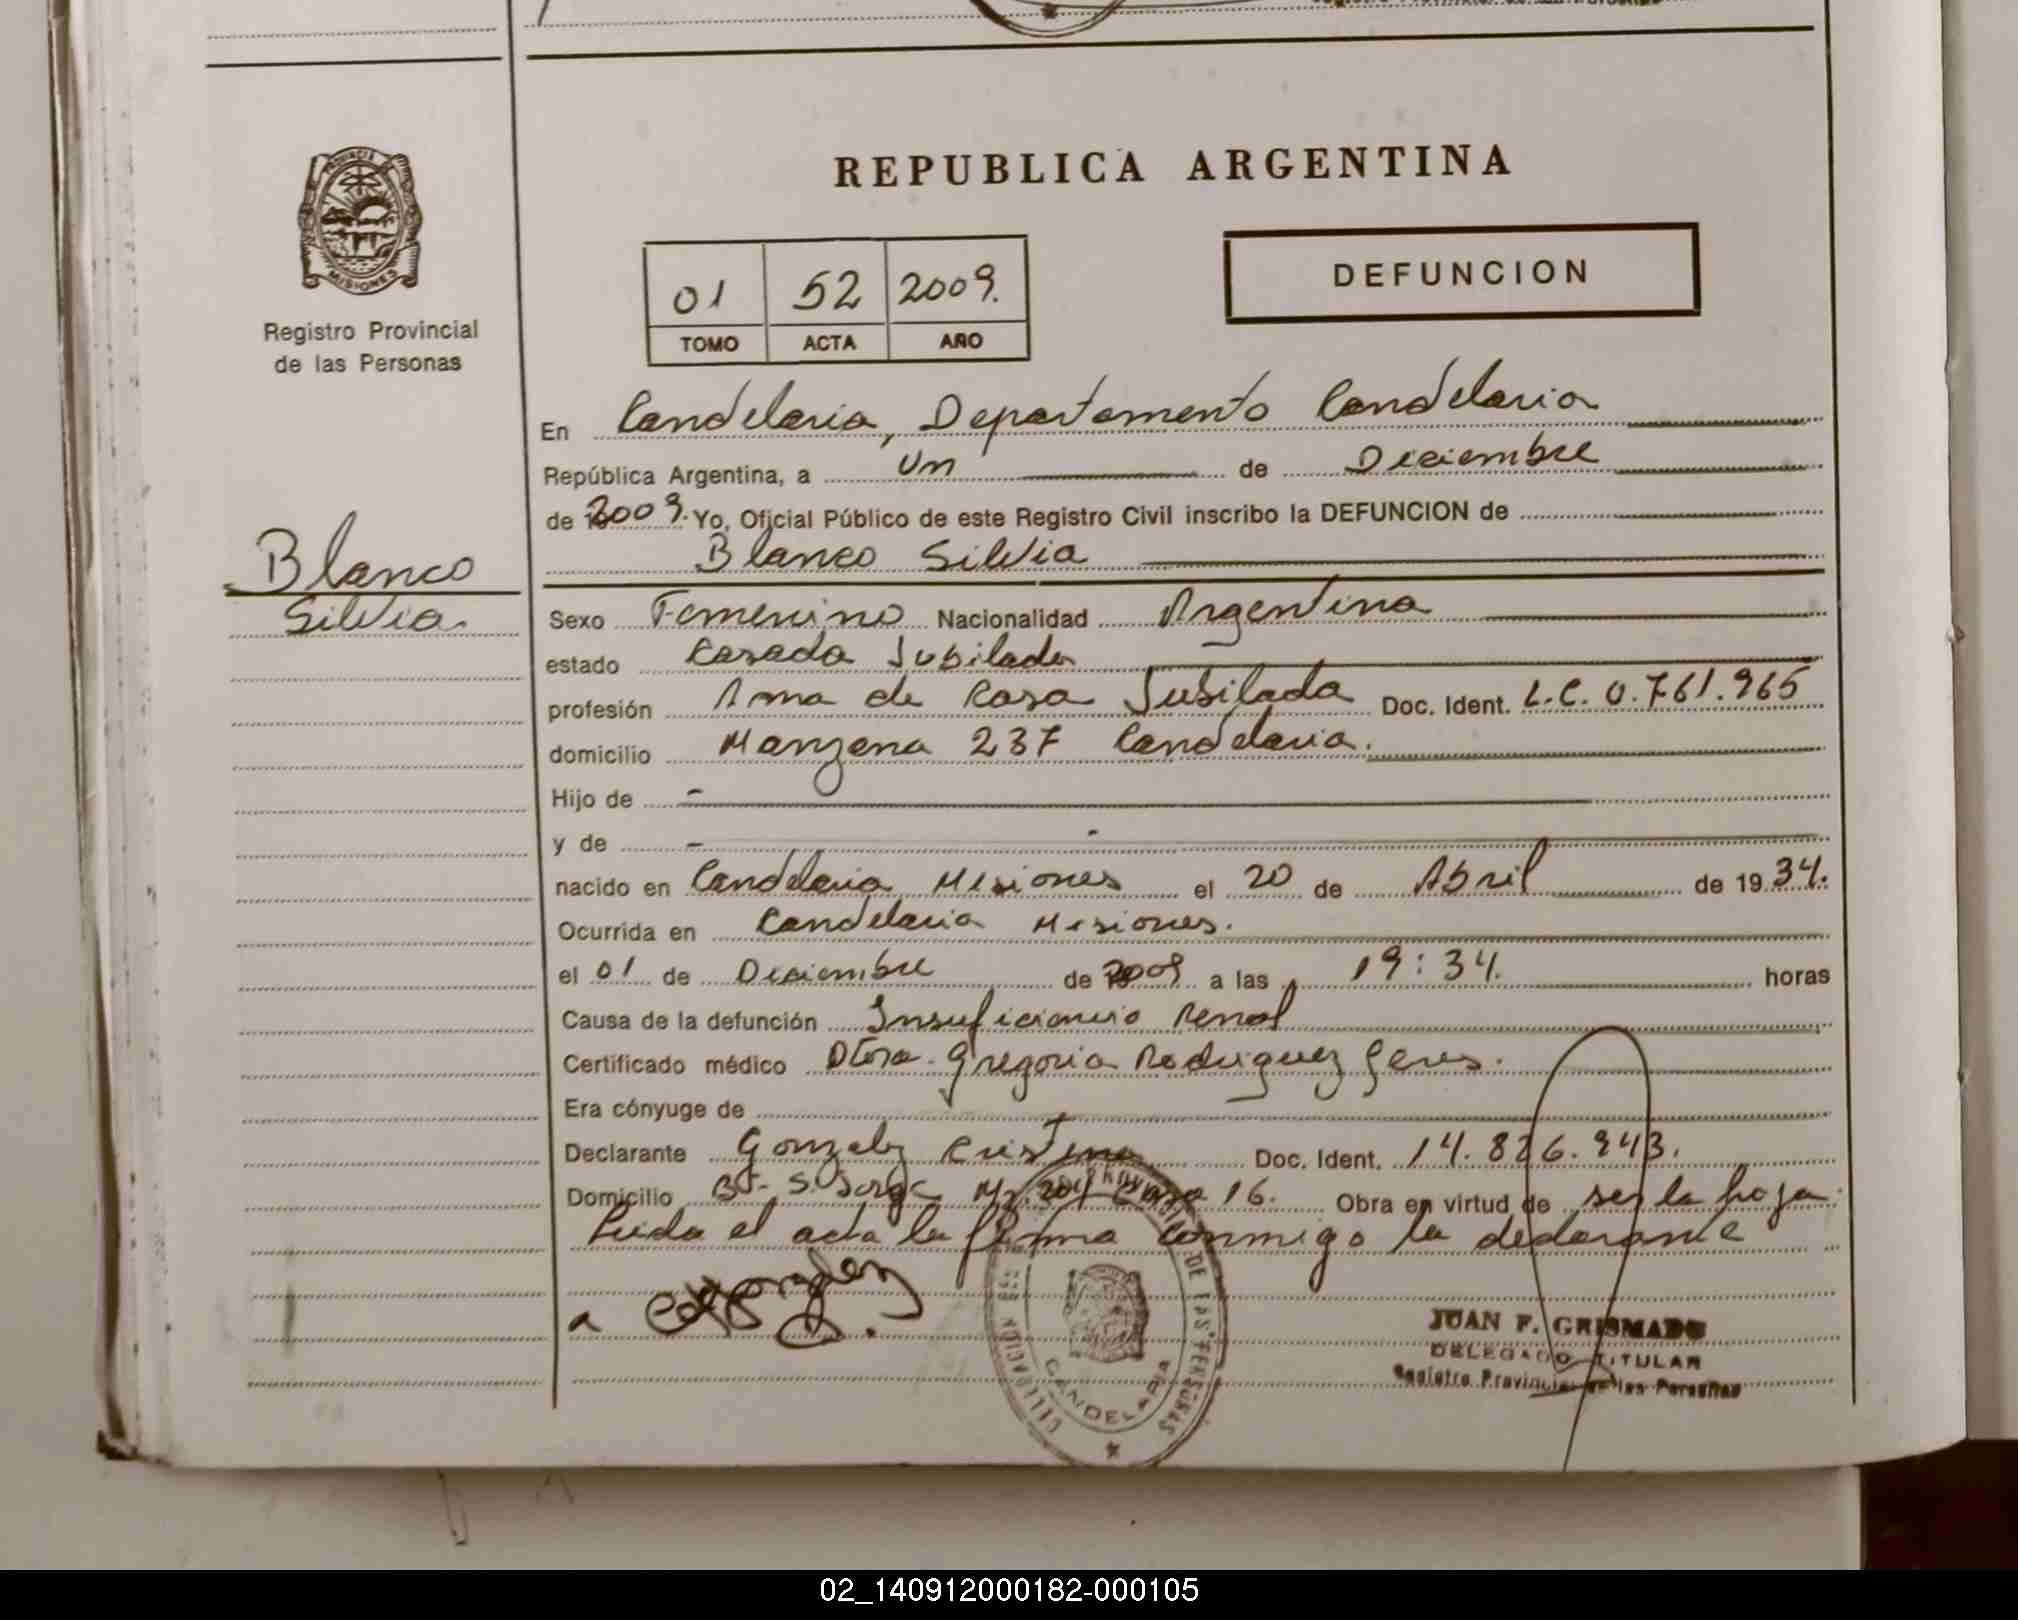 PROVINCIA DE
MISIONES
Registro Provincial
de las Personas
REPUBLICA ARGENTINA
01 52 2009.
TOMO ACTA AÑO
DEFUNCION
En Candelaria, Departamento Candelaria
República Argentina, a Un de Diciembre
de 2009. Yo, Oficial Público de este Registro Civil inscribo la DEFUNCION de
Blanco Silvia
Blanco
Silvia.
Sexo Femenino Nacionalidad Argentina
estado Casada Jubilada
profesión Ama de Casa Jubilada Doc. Ident. L.C. 0.761.965
domicilio Manzana 237 Candelaria.
Hijo de -
y de -
nacido en Candelaria Misiones el 20 de Abril de 1934.
Ocurrida en Candelaria Misiones.
el 01 de Diciembre de 2009 a las 19:34. horas
Causa de la defunción Insuficiencia Renal
Certificado médico Dtora. Gregoria Rodriguez
Era cónyuge de
Declarante Gonzalez Cristina Doc. Ident. 14.826.943.
Domicilio Bº. S. Jorge Mz. 201 Casa 16. Obra en virtud de ser la hoja
Leida el acta la firma conmigo la declarante
DE LAS PERSONAS
DELEGACION
CANDELARIA
JUAN F. GRISMADO
DELEGADO TITULAR
Registro Provincial de las Personas
02_140912000182-000105